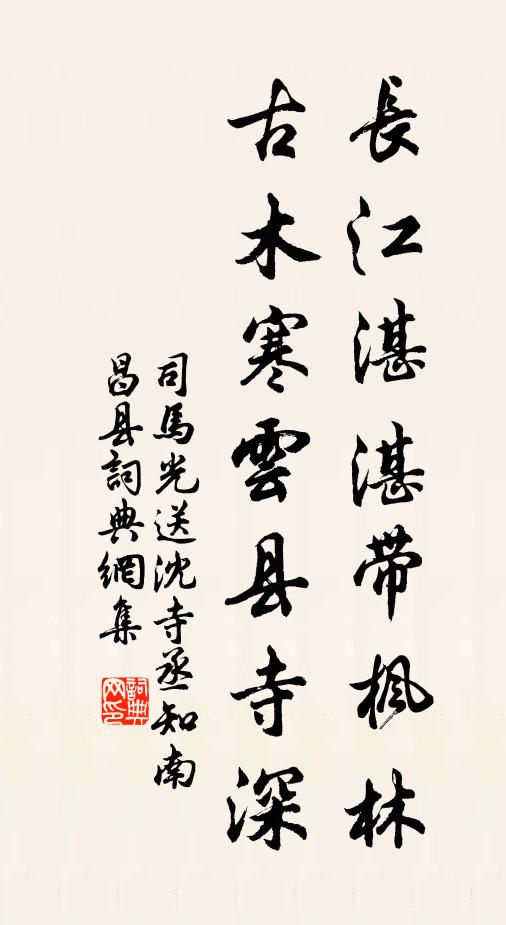 長江湛湛带楓林
古木寒雲县寺深
司馬光送沈寺丞知南
昌县詞典網集
詞典网印